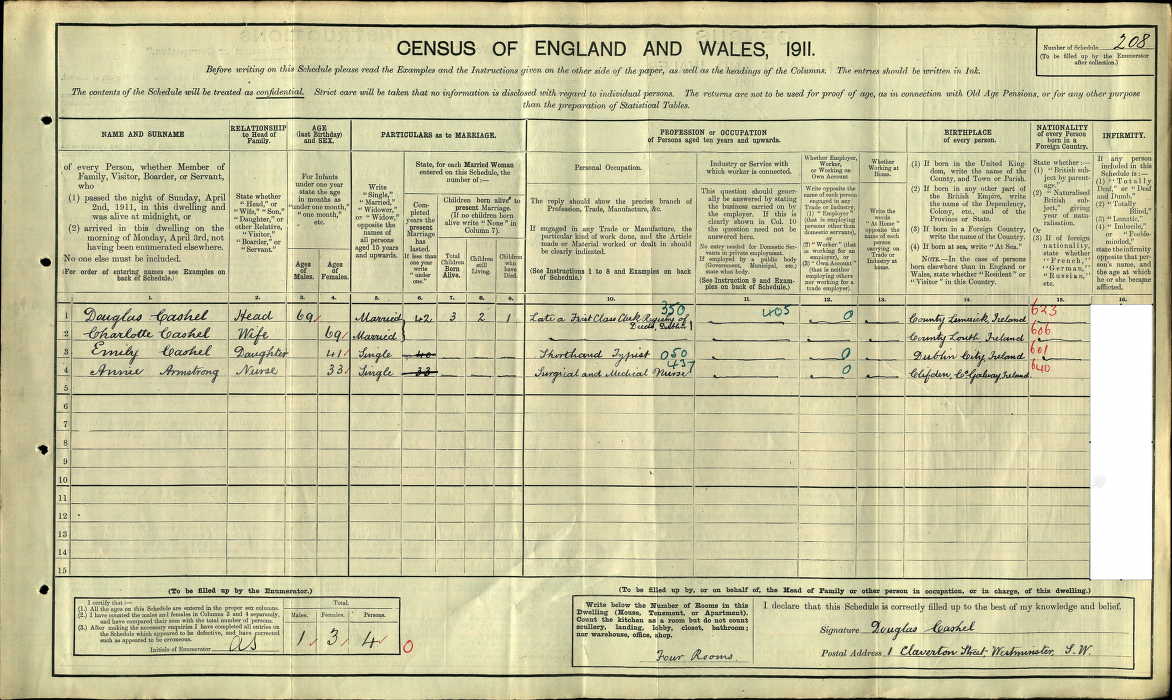 CENSUS OF ENGLAND AND WALES, 1911.
Number of Schedule 208
(To be filled up by the Enumerator
after collection.)
Before writing on this Schedule please read the Examples and the Instructions given on the other side of the paper, as well as the headings of the Columns. The entries should be written in Ink.
The contents of the Schedule will be treated as confidential. Strict care will be taken that no information is disclosed with regard to individual persons. The returns are not to be used for proof of age, as in connection with Old Age Pensions, or for any other purpose
than the preparation of Statistical Tables.
NAME AND SURNAME
of every Person, whether Member of
Family, Visitor, Boarder, or Servant,
who
(1) passed the night of Sunday, April
2nd, 1911, in this dwelling and
was alive at midnight, or
(2) arrived in this dwelling on the
morning of Monday, April 3rd, not
having been enumerated elsewhere.
No one else must be included.
(For order of entering names see Examples on
back of Schedule.)
RELATIONSHIP
to Head of
Family.
State whether
"Head," or
"Wife," "Son,"
"Daughter," or
other Relative,
"Visitor,"
"Boarder," or
"Servant."
AGE
(last Birthday)
and SEX.
For Infants
under one year
state the age
in months as
"under one month,"
"one month,"
etc.
Ages
of
Males.
Ages
of
Females.
PARTICULARS as to MARRIAGE.
Write
"Single,"
"Married,"
"Widower,"
or "Widow,"
opposite the
names of
all persons
aged 15 years
and upwards.
State, for each Married Woman
entered on this Schedule, the
number of :—
Completed
years the
present
Marriage
has
lasted.
If less than
one year
write
"under
one."
Children born alive to
present Marriage.
(If no children born
alive write "None" in
Column 7).
Total
Children
Born
Alive.
Children
still
Living.
Children
who
have
Died.
PROFESSION or OCCUPATION
of Persons aged ten years and upwards.
Personal Occupation.
The reply should show the precise branch of
Profession, Trade, Manufacture, &c.
If engaged in any Trade or Manufacture, the
particular kind of work done, and the Article
made or Material worked or dealt in should
be clearly indicated.
(See Instructions 1 to 8 and Examples on back
of Schedule.)
Industry or Service with
which worker is connected.
This question should gener-
ally be answered by stating
the business carried on by
the employer. If this is
clearly shown in Col. 10
the question need not be
answered here.
No entry needed for Domestic Ser-
vants in private employment.
If employed by a public body
(Government, Municipal, etc.)
state what body.
(See Instruction 9 and Exam-
ples on back of Schedule.)
Whether Employer,
Worker,
or Working on
Own Account
Write opposite the
name of each person
engaged in any
Trade or Industry
(1) "Employer"
(that is employing
persons other than
domestic servants),
or
(2) "Worker" (that
is working for an
employer), or
(3) "Own Account"
(that is neither
employing others
nor working for a
trade employer).
Whether
Working at
Home.
Write the
words
"At Home"
opposite the
name of each
person
carrying on
Trade or
Industry at
home.
BIRTHPLACE
of every person.
(1) If born in the United King-
dom, write the name of the
County, and Town or Parish.
(2) If born in any other part of
the British Empire, write
the name of the Dependency,
Colony, etc., and of the
Province or State.
(3) If born in a Foreign Country,
write the name of the Country.
(4) If born at sea, write "At Sea."
NOTE.—In the case of persons
born elsewhere than in England or
Wales, state whether "Resident" or
"Visitor" in this Country.
NATIONALITY
of every Person
born in a
Foreign Country.
State whether :—
(1) "British sub-
ject by parent-
age."
(2) "Naturalised
British sub-
ject," giving
year of natu-
ralisation.
Or
(3) If of foreign
nationality,
state whether
"French,"
"German,"
"Russian,"
etc.
INFIRMITY.
If any person
included in this
Schedule is :—
(1) "Totally
Deaf," or "Deaf
and Dumb,"
(2) "Totally
Blind,"
(3) "Lunatic,"
(4) "Imbecile,"
or "Feeble-
minded,"
state the infirmity
opposite that per-
son's name, and
the age at which
he or she became
afflicted.
1. 2. 3. 4. 5. 6. 7. 8. 9. 10. 11. 12. 13. 14. 15. 16.
1 Douglas Cashel Head 69 Married 42 3 2 1 Late a First Class Clerk Registry of Deeds, Dublin 350 — 405 0 — County Limerick, Ireland 623
2 Charlotte Cashel Wife 69 Married — — — County Louth Ireland 606
3 Emily Cashel Daughter 41 Single 40 — — — Shorthand Typist 050 — 0 — Dublin City, Ireland 601
4 Annie Armstrong Nurse 33 Single 33 — — — Surgical and Medical Nurse 437 — 0 — Clifden, Co Galway, Ireland. 640
5
6
7
8
9
10
11
12
13
14
15
(To be filled up by the Enumerator.)
I certify that :—
(1.) All the ages on this Schedule are entered in the proper sex columns.
(2.) I have counted the males and females in Columns 3 and 4 separately,
and have compared their sum with the total number of persons.
(3.) After making the necessary enquiries I have completed all entries on
the Schedule which appeared to be defective, and have corrected
such as appeared to be erroneous.
Initials of Enumerator
Total.
Males. Females. Persons.
1 3 4 0
(To be filled up by, or on behalf of, the Head of Family or other person in occupation, or in charge, of this dwelling.)
Write below the Number of Rooms in this
Dwelling (House, Tenement, or Apartment).
Count the kitchen as a room but do not count
scullery, landing, lobby, closet, bathroom;
nor warehouse, office, shop.
Four Rooms.
I declare that this Schedule is correctly filled up to the best of my knowledge and belief.
Signature Douglas Cashel
Postal Address 1 Claverton Street, Westminster, S.W.